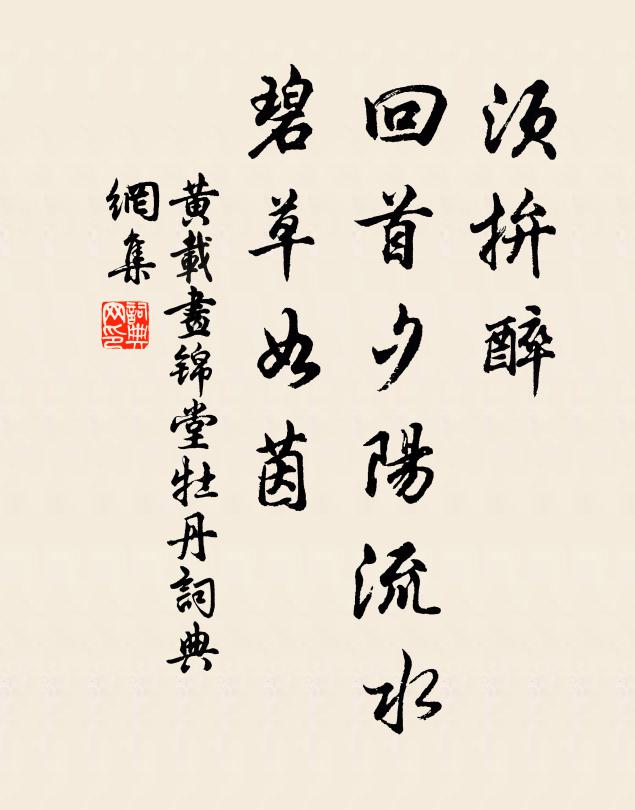 須拚醉
回首夕陽流水
碧草如茵
黃載晝錦堂牡丹詞典
網集
詞典
网印